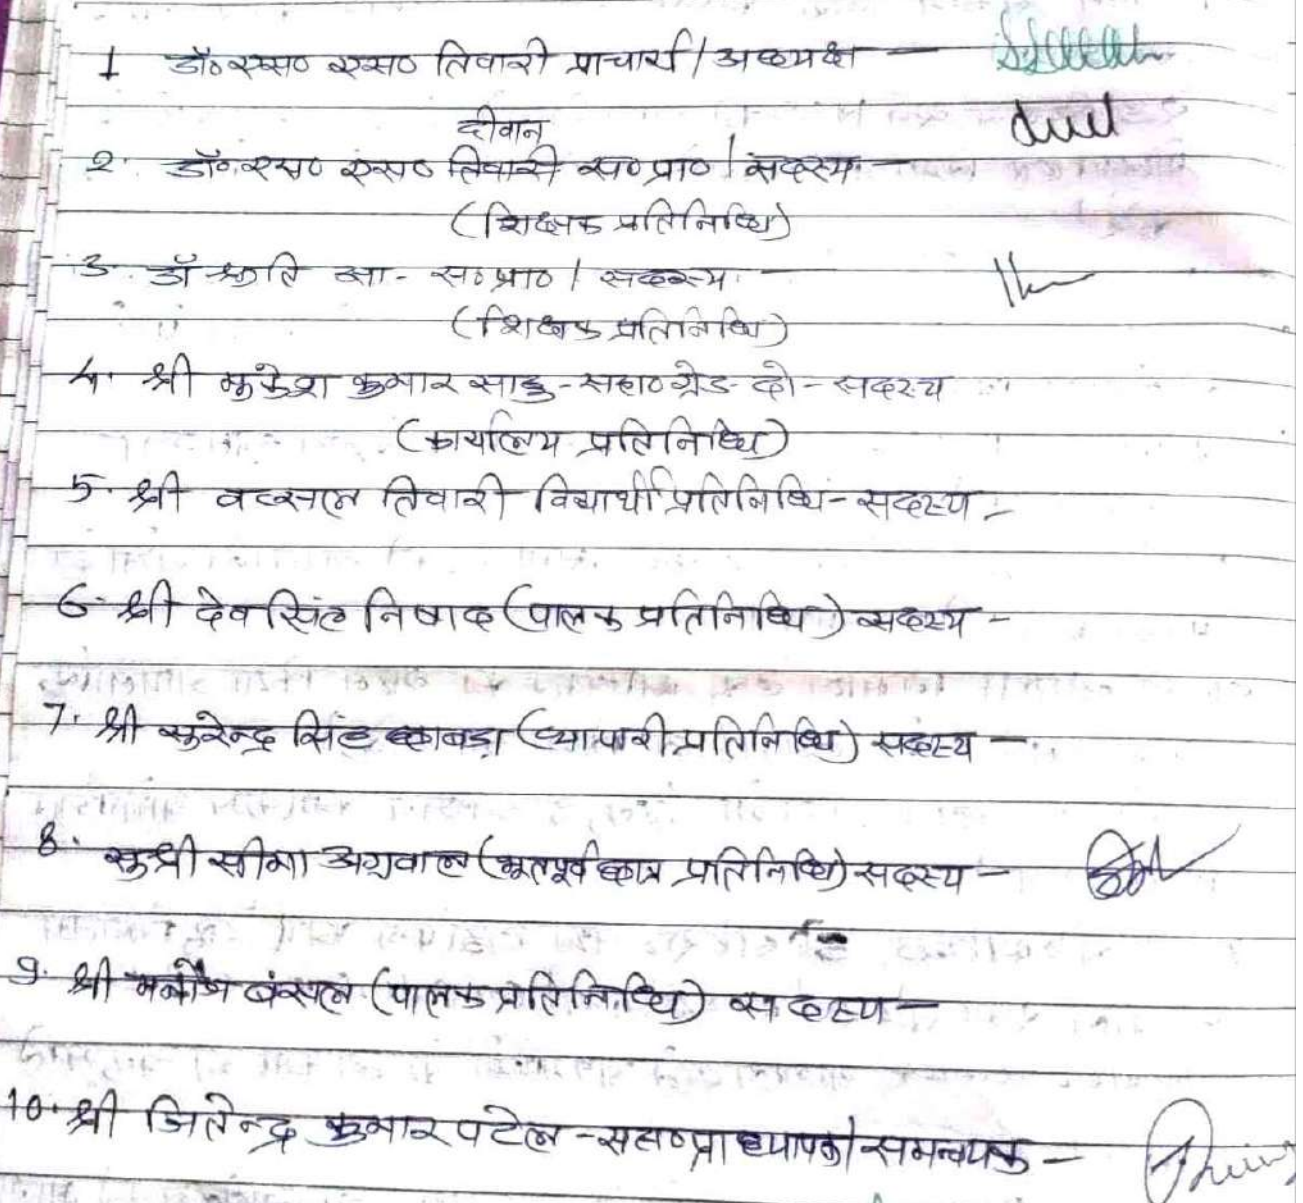 1 डॉ० एस० एस० तिवारी प्राचार्य / अध्यक्ष -
दीवान
2. डॉ० एस० एस० तिवारी स० प्रा० / सदस्य -
(शिक्षक प्रतिनिधि)
3. डॉ श्रुति झा - स० प्रा० / सदस्य -
(शिक्षक प्रतिनिधि)
4. श्री मुकेश कुमार साहु - सहा० ग्रेड - दो - सदस्य
(कार्यालय प्रतिनिधि)
5. श्री वत्सल तिवारी विद्यार्थी प्रतिनिधि - सदस्य -
6. श्री देव सिंह निषाद (पालक प्रतिनिधि) सदस्य -
7. श्री सुरेन्द्र सिंह छाबड़ा (व्यापारी प्रतिनिधि) सदस्य -
8. सुश्री सीमा अग्रवाल (भूतपूर्व छात्र प्रतिनिधि) सदस्य -
9. श्री मनोज बंसल (पालक प्रतिनिधि) सदस्य -
10. श्री जितेन्द्र कुमार पटेल - सहा० प्राध्यापक / समन्वयक -